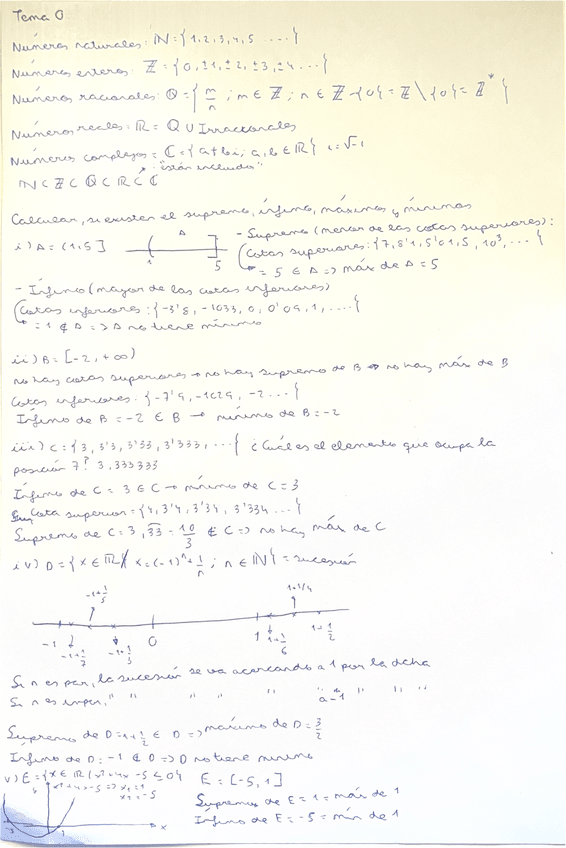 Tema 0
Números naturales: ℕ = {1, 2, 3, 4, 5 ....}
Números enteros: ℤ = {0, ±1, ±2, ±3, ±4 ...}
Números racionales: ℚ = { m/n ; m ∈ ℤ ; n ∈ ℤ - {0} = ℤ \ {0} = ℤ* }
Números reales: ℝ = ℚ ∪ Irracionales
Números complejos = ℂ = {a + bi ; a, b ∈ ℝ} i = √-1
"están incluido"
ℕ ⊂ ℤ ⊂ ℚ ⊂ ℝ ⊂ ℂ
Calcular, si existen el supremo, ínfimo, máximos y mínimos
i) A = (1, 5]
A
1 5
- Supremo (menor de las cotas superiores):
Cotas superiores: {7, 8'1, 5'01, 5, 10³, ... }
= 5 ∈ A => máx de A = 5
- Ínfimo (mayor de las cotas inferiores)
Cotas inferiores: {-3'8, -1033, 0, 0'09, 1, ....}
= 1 ∉ A => A no tiene mínimo
ii) B = [-2, +∞)
no hay cotas superiores → no hay supremo de B → no hay máx de B
Cotas inferiores: {-7'9, -1029, -2 ... }
Ínfimo de B = -2 ∈ B → mínimo de B = -2
iii) C = {3, 3'3, 3'33, 3'333, ... } ¿Cuál es el elemento que ocupa la
posición 7? 3,333333
Ínfimo de C = 3 ∈ C → mínimo de C = 3
Cota superior = {4, 3'4, 3'34, 3'334 ... }
Supremo de C = 3,33 = 10/3 ∉ C => no hay máx de C
iv) D = {x ∈ ℝ / x = (-1)ⁿ + 1/n ; n ∈ ℕ} = sucesión
-1+1/5 1+1/4
-1 -1+1/7 -1+1/3 0 1 1+1/6 1+1/2
Si n es par, la sucesión se va acercando a 1 por la dcha
Si n es impar, " " " " " a -1 " " "
Supremo de D = 1+1/2 ∈ D => máximo de D = 3/2
Ínfimo de D: -1 ∉ D => D no tiene mínimo
v) E = {x ∈ ℝ / x² + 4x - 5 ≤ 0} E = [-5, 1]
x² + 4x - 5 => x₁ = 1
x₂ = -5
Supremo de E = 1 = máx de 1
Ínfimo de E = -5 = mín de 1
-5 1 x